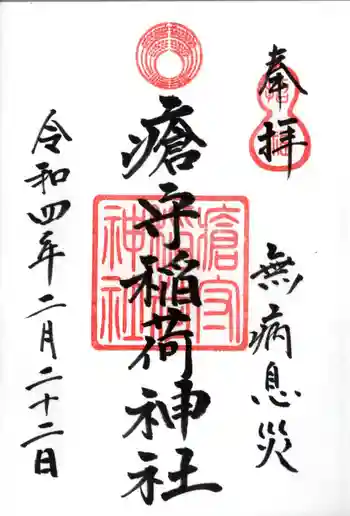 奉拝
無病息災
瘡守稲荷神社
瘡守稲荷神社
令和四年二月二十二日